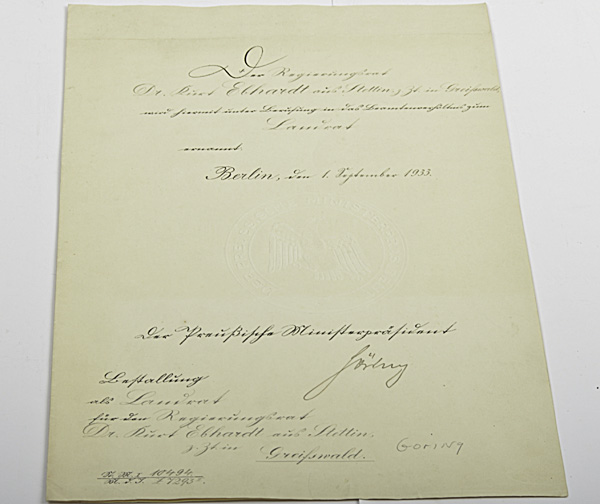 Der Regierungsrat
Dr. Kurt Ebhardt aus Stettin, z. Zt. in Greifswald,
wird hiermit unter Berufung in das Beamtenverhältnis zum
Landrat
ernannt.
Berlin, den 1. September 1933.
Der Preußische Ministerpräsident
Göring
Bestallung
als Landrat
für den Regierungsrat
Dr. Kurt Ebhardt aus Stettin,
z. Zt. in
Greifswald.
GÖRING
10494
M. d. I.